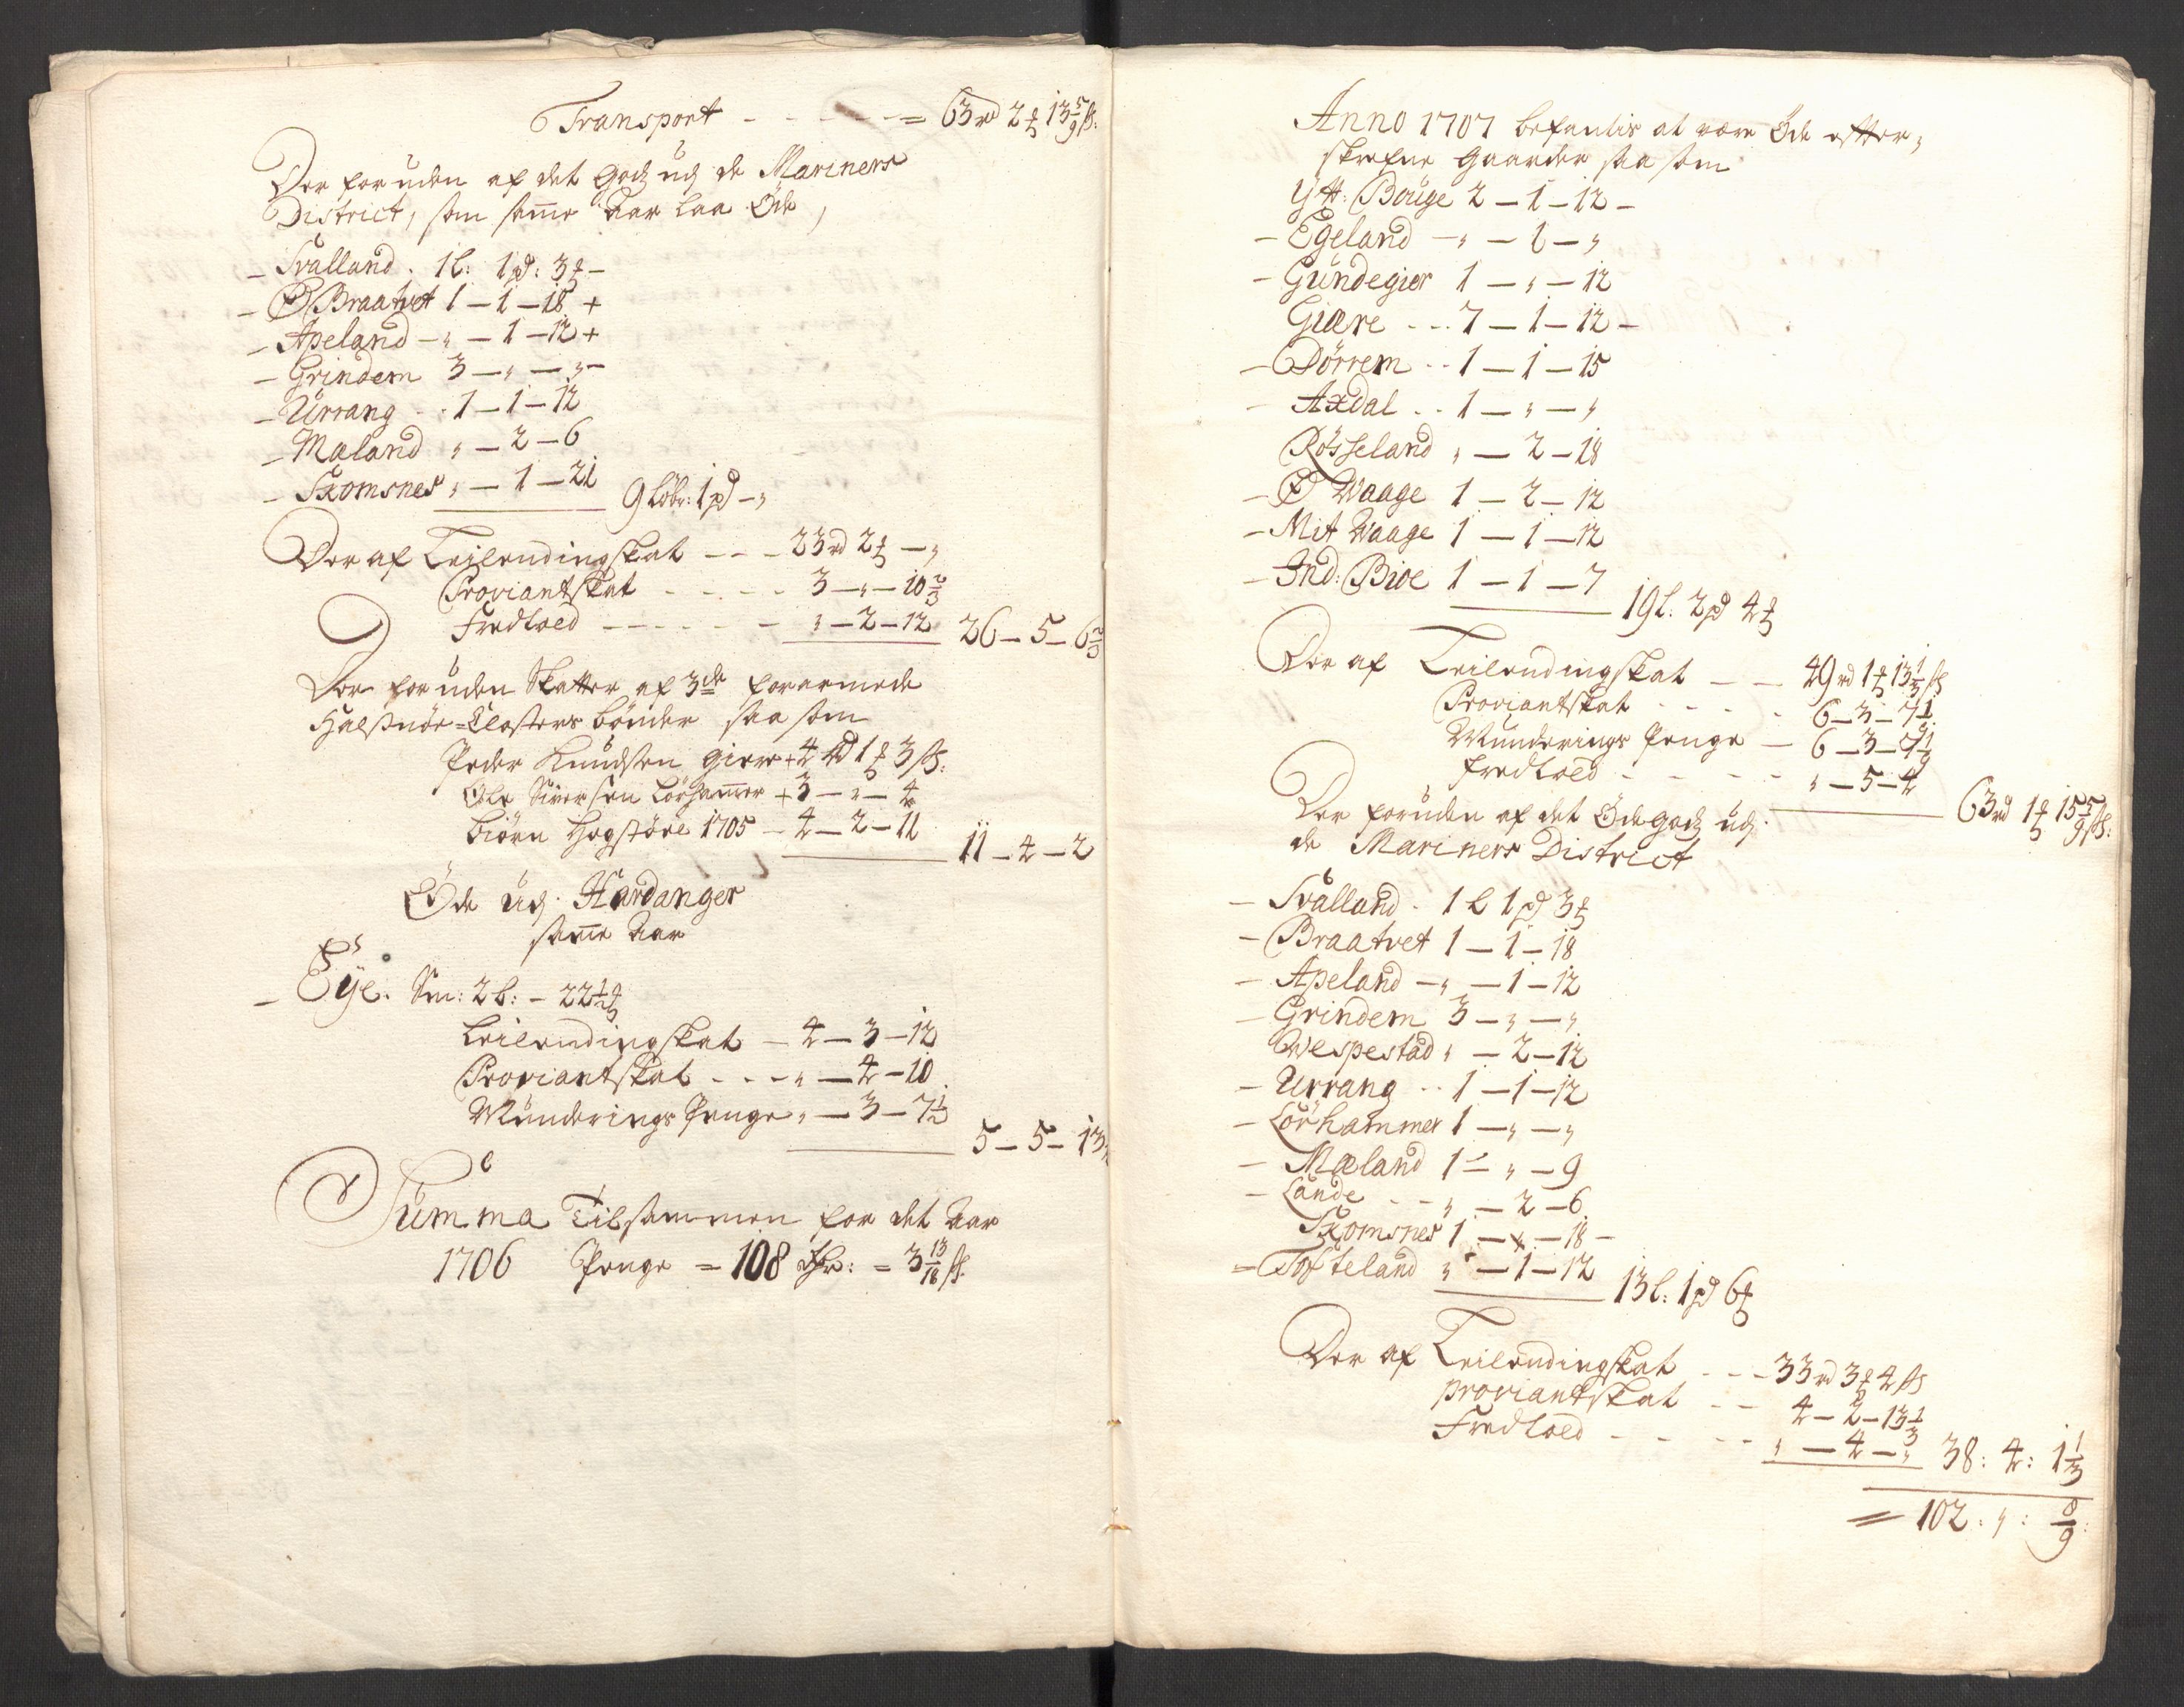 Transport - - - - - = 63 rd 2 ₰ 13 5/9 ß:
Der foruden af det Godz udj de Mariners
District, som samme Aar laa Öde,
- Svalland . 1 l: 1 pd: 3 ₰ -
- Ø Braatvet 1 - 1 - 18 +
- Apeland - „ - 1 - 12 +
- Grindem 3 - „ - „ -
- Urrang - - 1 - 1 - 12
- Mæland „ - 2 - 6
- Skomsnes „ - 1 - 21
9 løbr: 1 pd - „
Der af Leilendingskat - - - 23 rd 2 ₰ - „
Proviantskat - - - - - 3 - „ - 10 2/3
Fredtold - - - - - - „ - 2 - 12
26 - 5 - 6 2/3
Der foruden Skatter af 3de forarmede
Halsnöe-Closters bönder saa som
Peder Knudsen Giere + 4 rd 1 ₰ 3 ß:
Ole Siversen Lörhammer + 3 - „ - 4
Biörn Hogstöre 1705 - 4 - 2 - 11
11 - 4 - 2
Öde udj Hardanger
samme Aar
- Eÿe. Sm: 2 l: - 22 1/2 ₰
Leilendingskat - 4 - 3 - 12
Proviantskat - - - „ - 4 - 10
Munderings Penge „ - 3 - 7 1/2
5 - 5 - 13
Summa Tilsammen for det Aar
1706 Penge = 108 Dr: = 3 13/18 ß
Anno 1707 befantis at være Öde efter,
skrefne Gaarder saa som
Ytt: Bouge 2 - 1 - 12 -
- Egeland - „ - 1 - „
- Gundegier 1 - „ - 12
Giære - - - 7 - 1 - 12 -
- Dörrem - - 1 - 1 - 15
- Axdal - - 1 - „ - „
Rösseland „ - 2 - 18
- Ø Waage 1 - 2 - 12
- Mit Waage 1 - 1 - 12
- Ind: Bioe 1 - 1 - 7
19 l: 2 pd 4 ₰
Der af Leilendingskat - - 49 rd 1 ₰ 13 1/3 ß
Proviantskat - - - - - 6 - 3 - 7 1/9
Munderings Penge - 6 - 3 - 7 1/9
fredtold - - - - - „ - 5 - 4
63 rd 1 ₰ 15 5/9 ß:
Der foruden af det Öde godz udj
de Mariners District
- Svalland - 1 l 1 pd 3 ₰
- Braatvet 1 - 1 - 18
- Apeland - „ - 1 - 12
- Grindem 3 - „ - „
Wespestad „ - 2 - 12
- Urrang - - 1 - 1 - 12
- Lörhammer 1 - „ - „
- Mæland 1 - „ - 9
- Lande - - „ - 2 - 6
Skomsnes 1 - „ - 18 -
= Tofteland „ - 1 - 12
13 l: 1 pd 6 ₰
Der af Leilendingskat - - - 33 rd 3 ₰ 4 ß
proviantskat - - 4 - 2 - 13 1/3
Fredtold - - - - - „ - 4 - „
38 : 4 : 1 1/3
= 102 : „ : 8/9 :